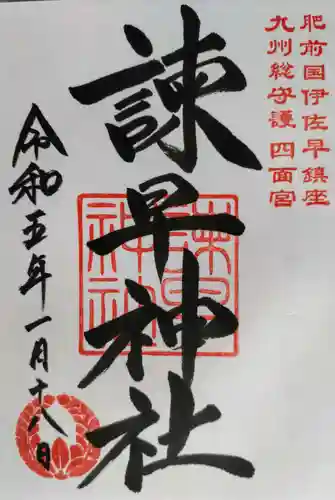 肥前国伊佐早鎮座
九州総守護 四面宮
諫早神社
諫早神社
令和五年一月十八日